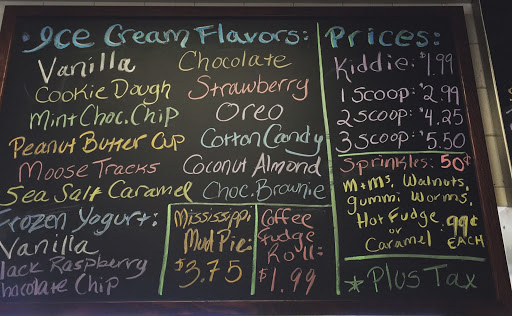 Ice Cream Flavors:
Vanilla
Cookie Dough
Mint Choc. Chip
Peanut Butter Cup
Moose Tracks
Sea Salt Caramel
Chocolate
Strawberry
Oreo
Cotton Candy
Coconut Almond
Choc. Brownie
Frozen Yogurt:
Vanilla
Black Raspberry
Chocolate Chip
Mississippi
Mud Pie:
$3.75
Coffee
Fudge
Roll:
$1.99
Prices:
Kiddie: $1.99
1 Scoop: $2.99
2 Scoop: $4.25
3 Scoop: $5.50
Sprinkles: 50¢
M+Ms, Walnuts,
gummi Worms,
Hot Fudge
or
Caramel
99¢
EACH
*Plus Tax